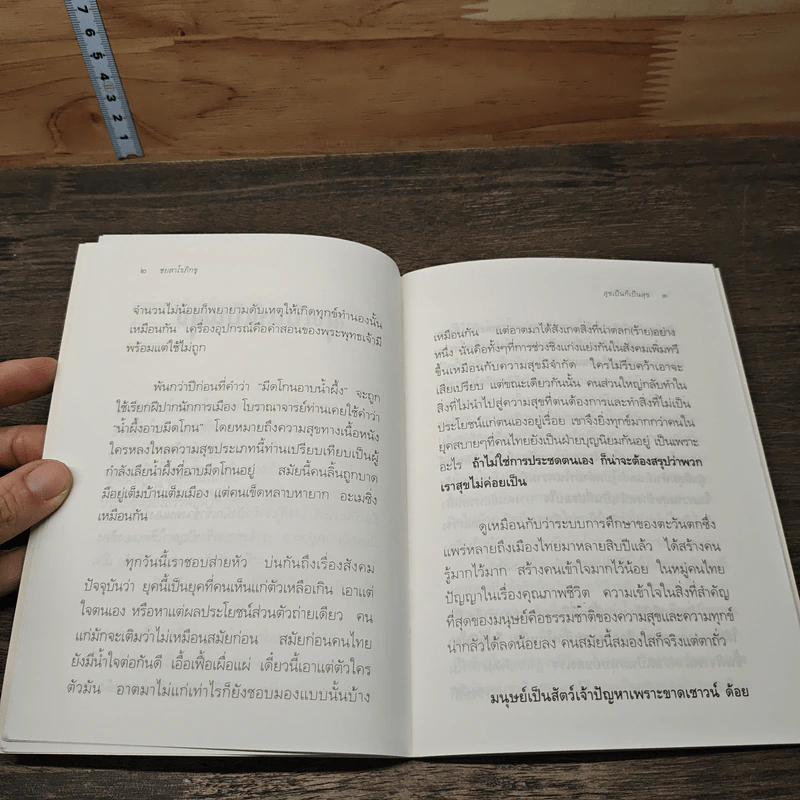 7 6 5 4 3 2 1
๒ ชยสาโรภิกขุ
จำนวนไม่น้อยก็พยายามดับเหตุให้เกิดทุกข์ทำนองนั้น
เหมือนกัน เครื่องอุปกรณ์คือคำสอนของพระพุทธเจ้ามี
พร้อมแต่ใช้ไม่ถูก
พันกว่าปีก่อนที่คำว่า "มีดโกนอาบน้ำผึ้ง" จะถูก
ใช้เรียกฝีปากนักการเมือง โบราณาจารย์ท่านเคยใช้คำว่า
"น้ำผึ้งอาบมีดโกน" โดยหมายถึงความสุขทางเนื้อหนัง
ใครหลงใหลความสุขประเภทนี้ท่านเปรียบเทียบเป็นผู้
กำลังเลียน้ำผึ้งที่อาบมีดโกนอยู่ สมัยนี้คนลิ้นถูกบาด
มีอยู่เต็มบ้านเต็มเมือง แต่คนเข็ดหลาบหายาก อะเมซิ่ง
เหมือนกัน
ทุกวันนี้เราชอบส่ายหัว บ่นกันถึงเรื่องสังคม
ปัจจุบันว่า ยุคนี้เป็นยุคที่คนเห็นแก่ตัวเหลือเกิน เอาแต่
ใจตนเอง หรือหาแต่ผลประโยชน์ส่วนตัวถ่ายเดียว คน
แก่มักจะเติมว่าไม่เหมือนสมัยก่อน สมัยก่อนคนไทย
ยังมีน้ำใจต่อกันดี เอื้อเฟื้อเผื่อแผ่ เดี๋ยวนี้เอาแต่ตัวใคร
ตัวมัน อาตมาไม่แก่เท่าไรก็ยังชอบมองแบบนั้นบ้าง
สุขเป็นก็เป็นสุข ๓
เหมือนกัน แต่อาตมาได้สังเกตสิ่งที่น่าตลก(ร้าย)อย่าง
หนึ่ง นั่นคือทั้งๆที่การช่วงชิงแก่งแย่งกันในสังคมเพิ่มทวี
ขึ้นเหมือนกับความสุขมีจำกัด ใครไม่รีบคว้าเอาจะ
เสียเปรียบ แต่ขณะเดียวกันนั้น คนส่วนใหญ่กลับทำใน
สิ่งที่ไม่นำไปสู่ความสุขที่ตนต้องการและทำสิ่งที่ไม่เป็น
ประโยชน์แก่ตนเองอยู่เรื่อย เขาจึงยิ่งทุกข์มากกว่าคนใน
ยุคสบายๆที่คนไทยยังเป็นฝ่ายบุญนิยมกันอยู่ เป็นเพราะ
อะไร ถ้าไม่ใช่การประชดตนเอง ก็น่าจะต้องสรุปว่าพวก
เราสุขไม่ค่อยเป็น
ดูเหมือนกับว่าระบบการศึกษาของตะวันตกซึ่ง
แพร่หลายถึงเมืองไทยมาหลายสิบปีแล้ว ได้สร้างคน
รู้มากไว้มาก สร้างคนเข้าใจมากไว้น้อย ในหมู่คนไทย
ปัญญาในเรื่องคุณภาพชีวิต ความเข้าใจในสิ่งที่สำคัญ
ที่สุดของมนุษย์คือธรรมชาติของความสุขและความทุกข์
น่ากลัวได้ลดน้อยลง คนสมัยนี้สมองใสก็จริงแต่ตาถั่ว
มนุษย์เป็นสัตว์เจ้าปัญหาเพราะขาดเชาวน์ ด้อย